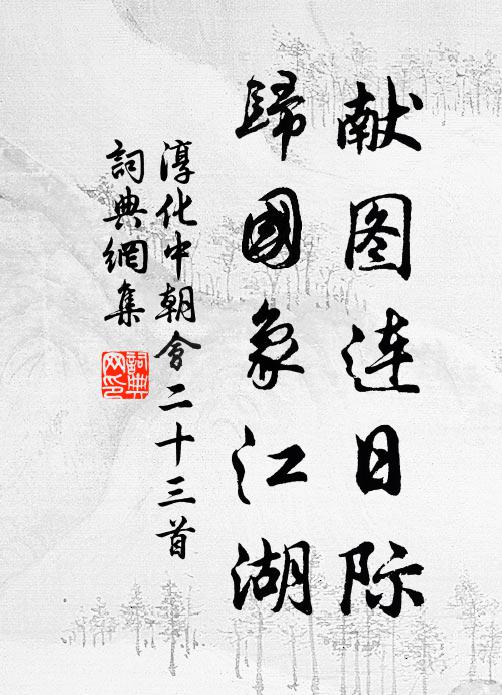 献图连日际
歸國象江湖
淳化中朝會二十三首
詞典網集
詞典网印